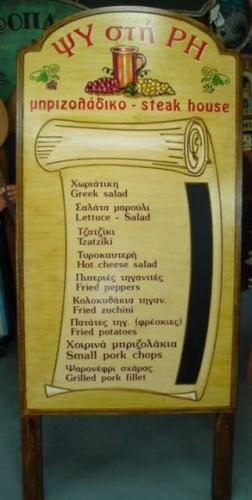 ΟΠΑ
ΨΥ στή ΡΗ
μπριζολάδικο - steak house
Χωριάτικη
Greek salad
Σαλάτα μαρούλι
Lettuce - Salad
Τζατζίκι
Tzatziki
Τυροκαυτερή
Hot cheese salad
Πιπεριές τηγανιτές
Fried peppers
Κολοκυθάκια τηγαν.
Fried zuchini
Πατάτες τηγ. (φρέσκιες)
Fried potatoes
Χοιρινά μπριζολάκια
Small pork chops
Ψαρονέφρι σχάρας
Grilled pork fillet